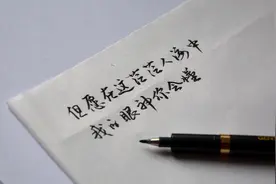 但愿在这茫茫人海中
我的眼神你会懂